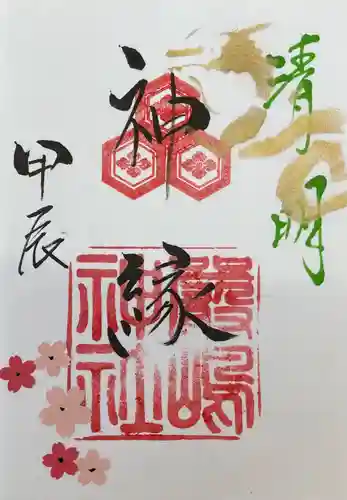 清明
神縁
甲辰
嚴嶋
神社